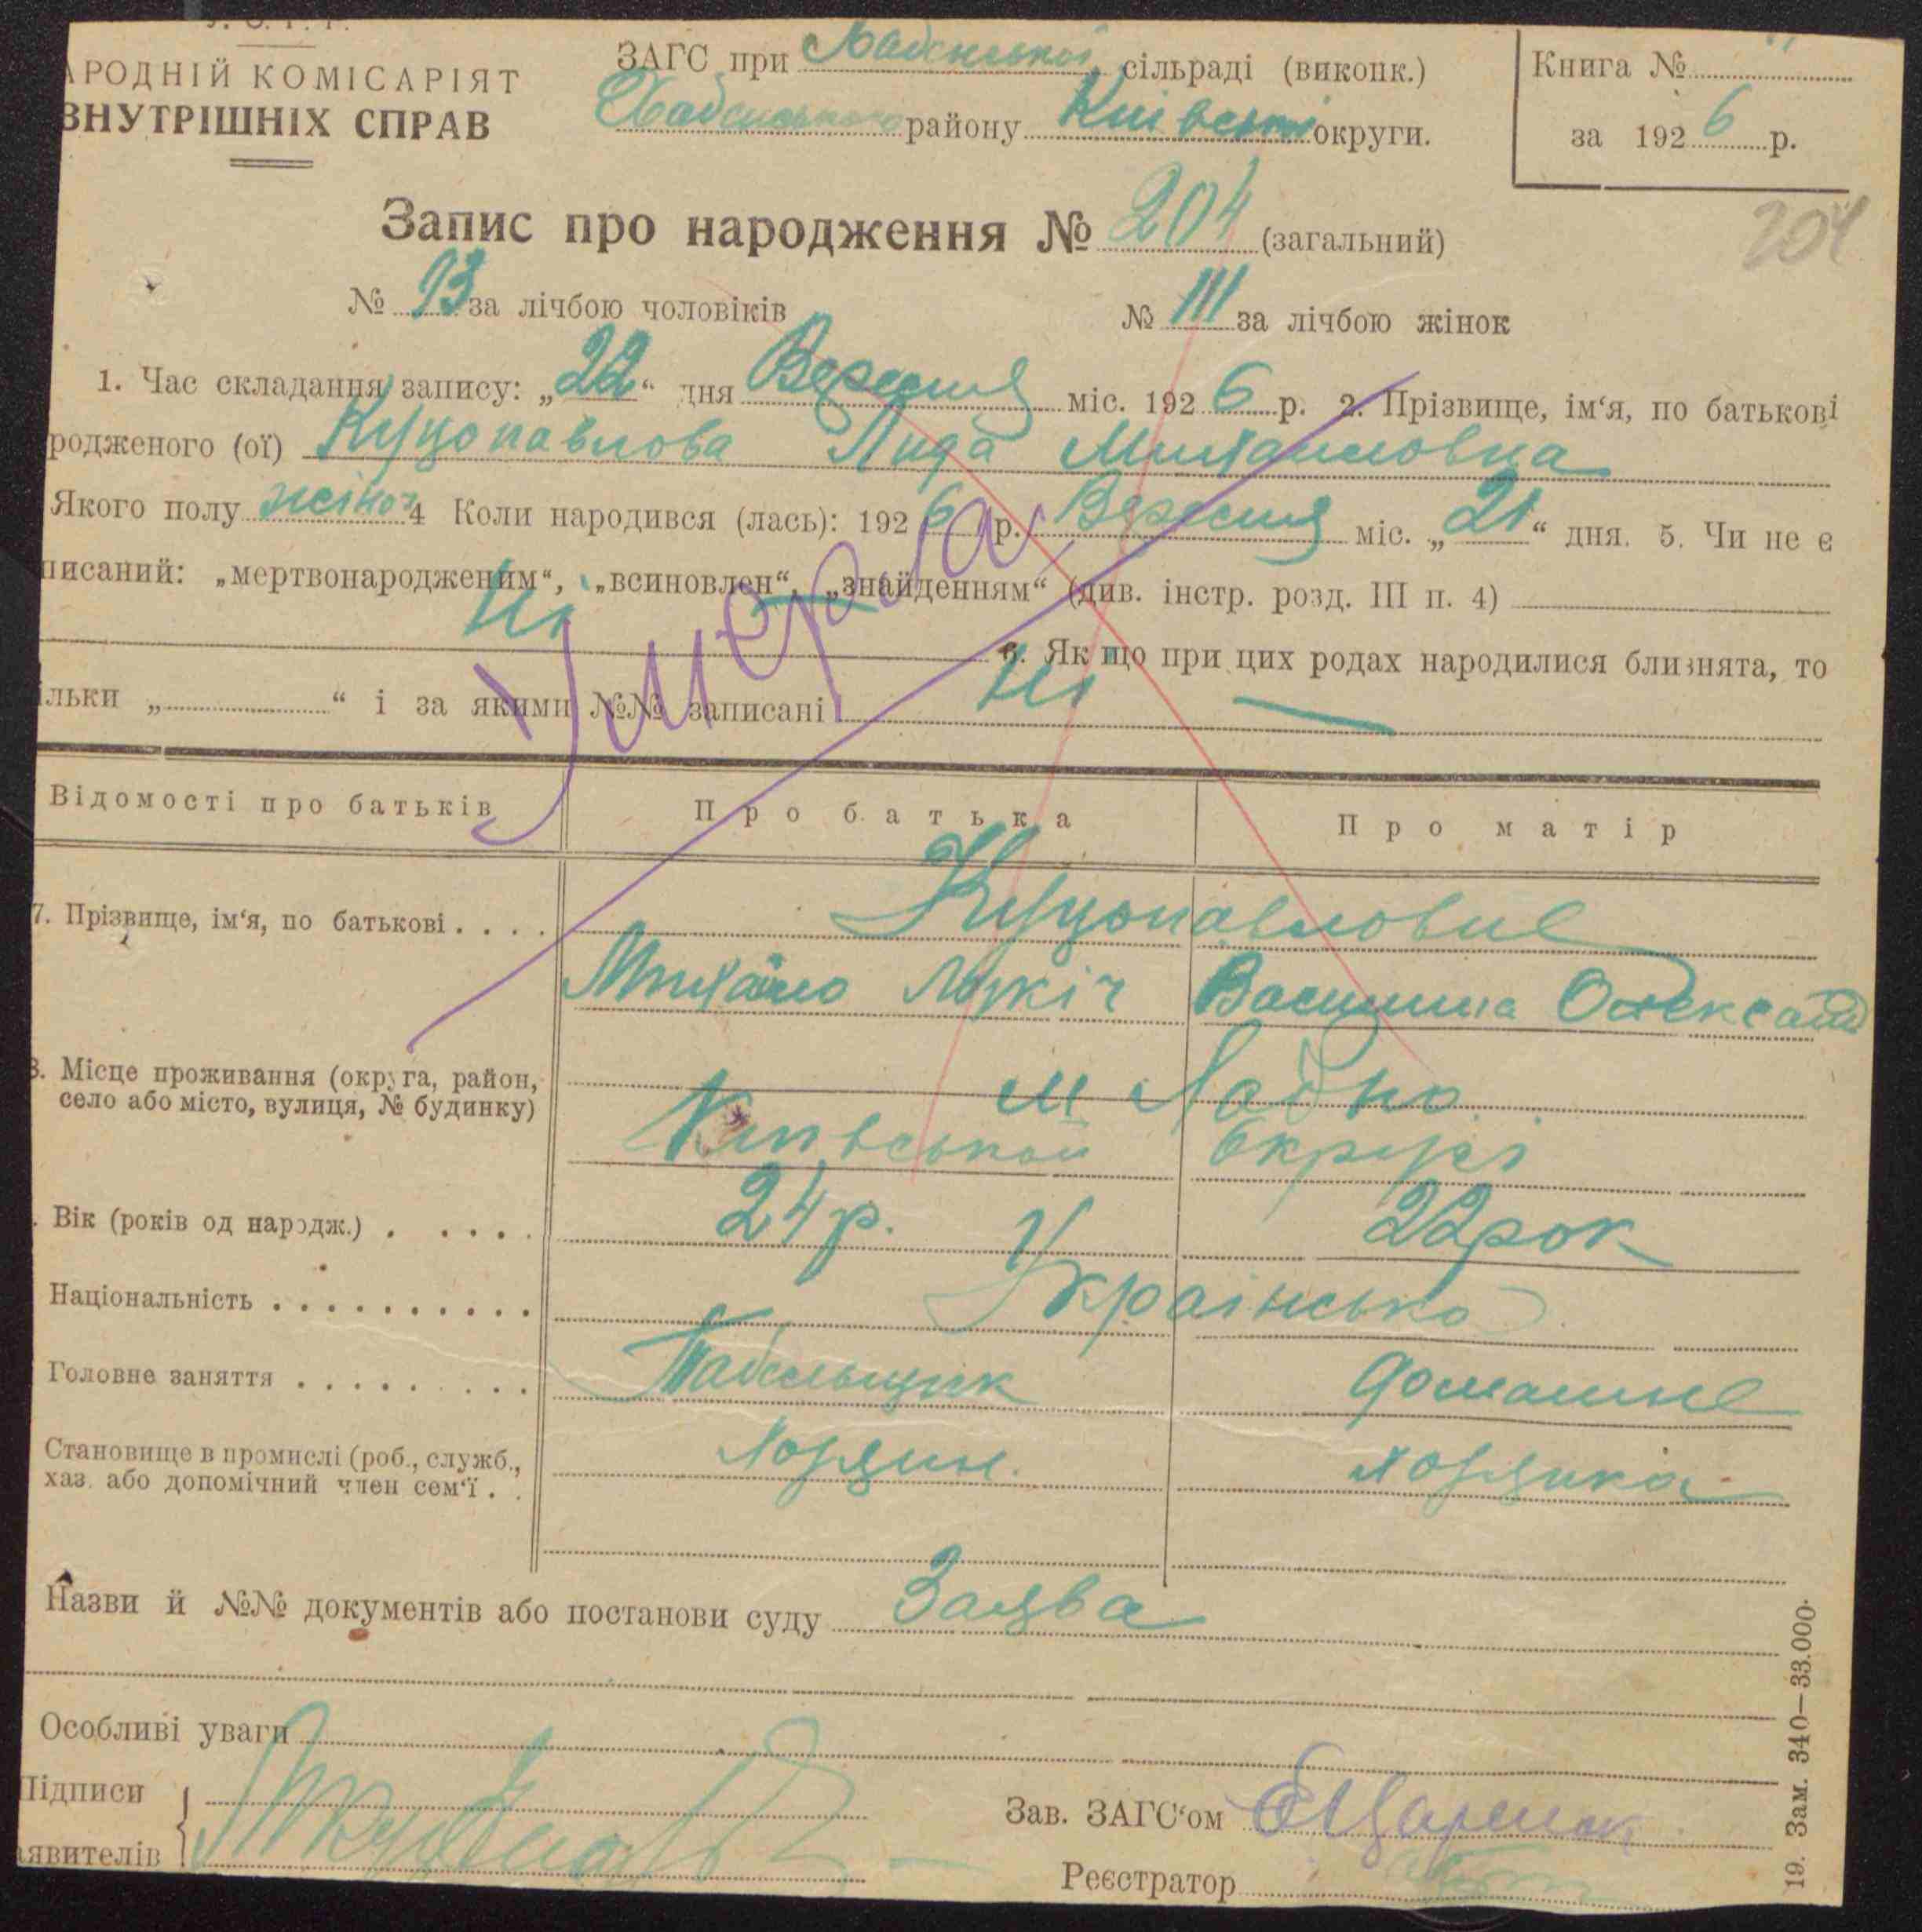 У. С. Р. Р.
АРОДНІЙ КОМІСАРІЯТ
ВНУТРІШНІХ СПРАВ
ЗАГС при Хабенської сільраді (виконк.)
Хабенського району Київської округи.
Книга №
за 1926 р.
Запис про народження № 204 (загальний)
204
№ 93 за лічбою чоловіків № 111 за лічбою жінок
1. Час складання запису: „22“ дня Вересня міс. 1926 р. 2. Прізвище, ім'я, по батькові
родженого (ої) Куцопавлова Лида Михайловна
Якого полу жіноч 4 Коли народився (лась): 1926 р. Вересня міс. „21“ дня. 5. Чи не є
писаний: „мертвонародженим“, „всиновлен“, „знайденням“ (див. інстр. розд. III п. 4)
Ні
Умерла
6. Як що при цих родах народилися близнята, то
ільки „ “ і за якими №№ записані Ні
Відомості про батьків Про батька Про матір
7. Прізвище, ім'я, по батькові . . . . Куцопавловие
Михайло Лукіч Василина Олександ
8. Місце проживання (округа, район,
село або місто, вулиця, № будинку)
м Хабно
Київської Округі
. Вік (років од народж.) . . . . . 24 р. 22 рок
Національність . . . . . . . . . . Українська
Головне заняття . . . . . . . . . Табельщик домашне
Становище в промислі (роб., служб.,
хаз. або допомічний член сем'ї . .
Назви й №№ документів або постанови суду Заява
Особливі уваги
Підписи
аявителів
Зав. ЗАГС'ом
Реєстратор
19. Зам. 340—33.000.